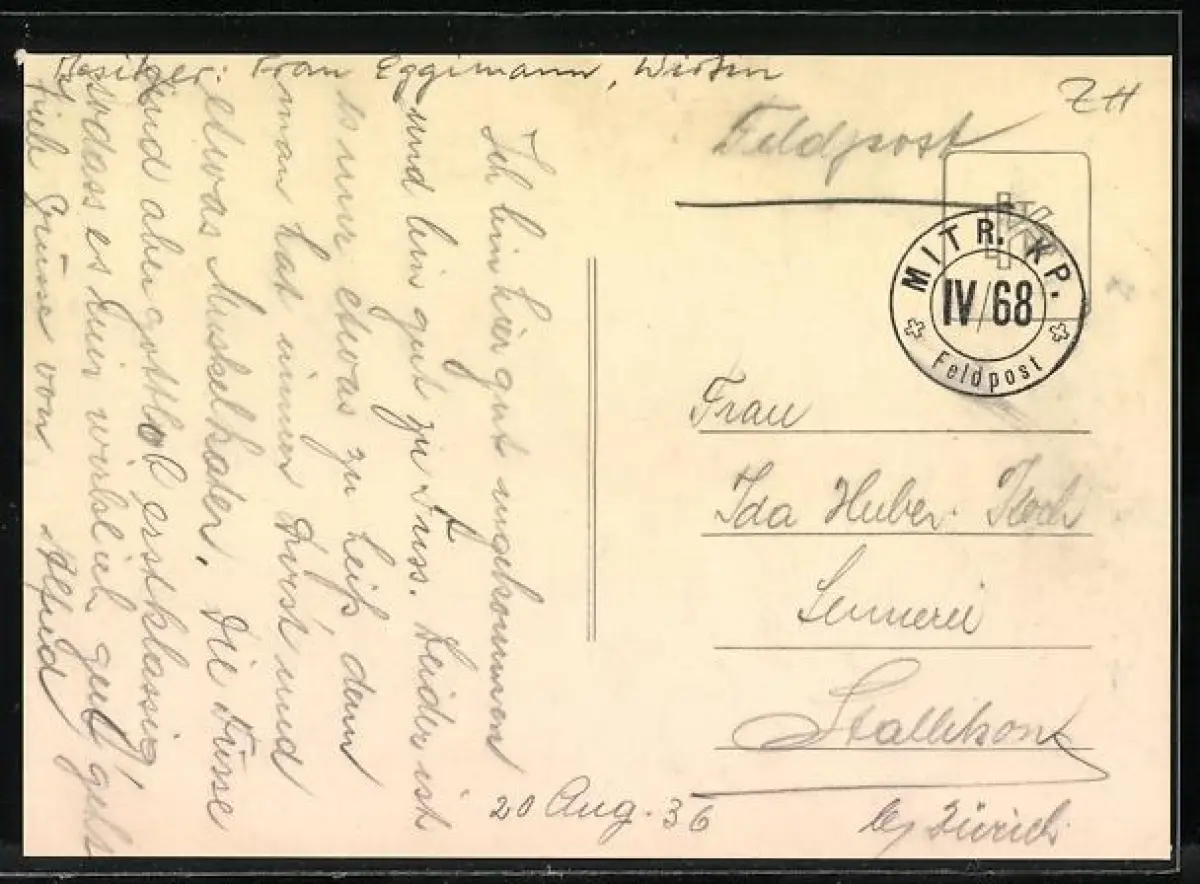 Besitzer: Frau Eggimann, Wirtin
Ich bin hier gut angekommen
und bin gut zu Fuss. Leider ist
es nur etwas zu heiß denn
man hat immer Durst und
etwas Muskelkater. Die Füsse
sind aber gottlob erstklassig
sodass es mir wirklich gut geht
Viele Grüsse von Alfred
ZH
Feldpost
MITR. KP.
IV/68
Feldpost
Frau
Ida Huber-Koch
Sennerei
Stallikon
bei Zürich
20 Aug. 36